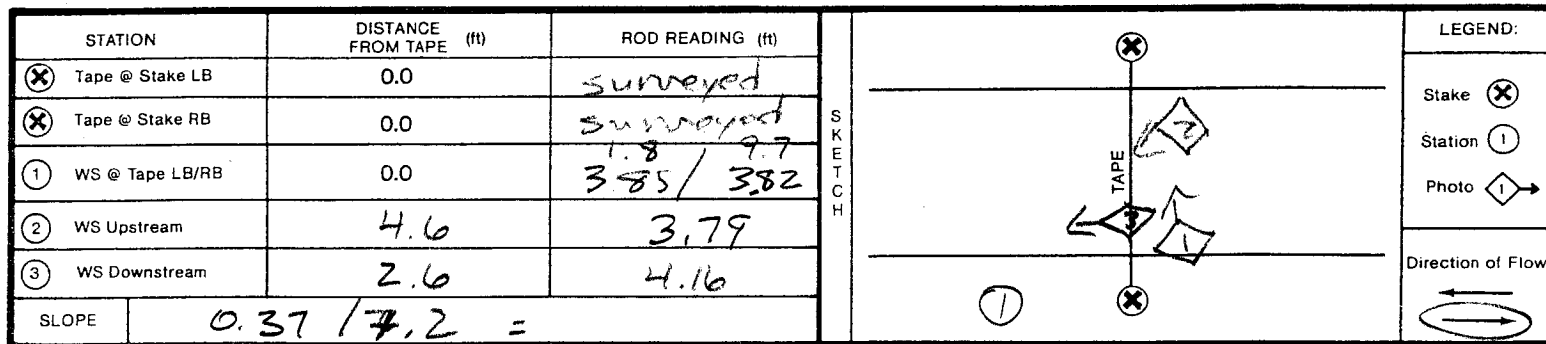 STATION DISTANCE FROM TAPE (ft) ROD READING (ft)
Tape @ Stake LB 0.0 surveyed
Tape @ Stake RB 0.0 surveyed
1.8 9.7
1 WS @ Tape LB/RB 0.0 3.85 / 3.82
2 WS Upstream 4.6 3.79
3 WS Downstream 2.6 4.16
SLOPE 0.37 / 7.2 =
SKETCH
TAPE
2
3
1
1
LEGEND:
Stake
Station 1
Photo 1
Direction of Flow